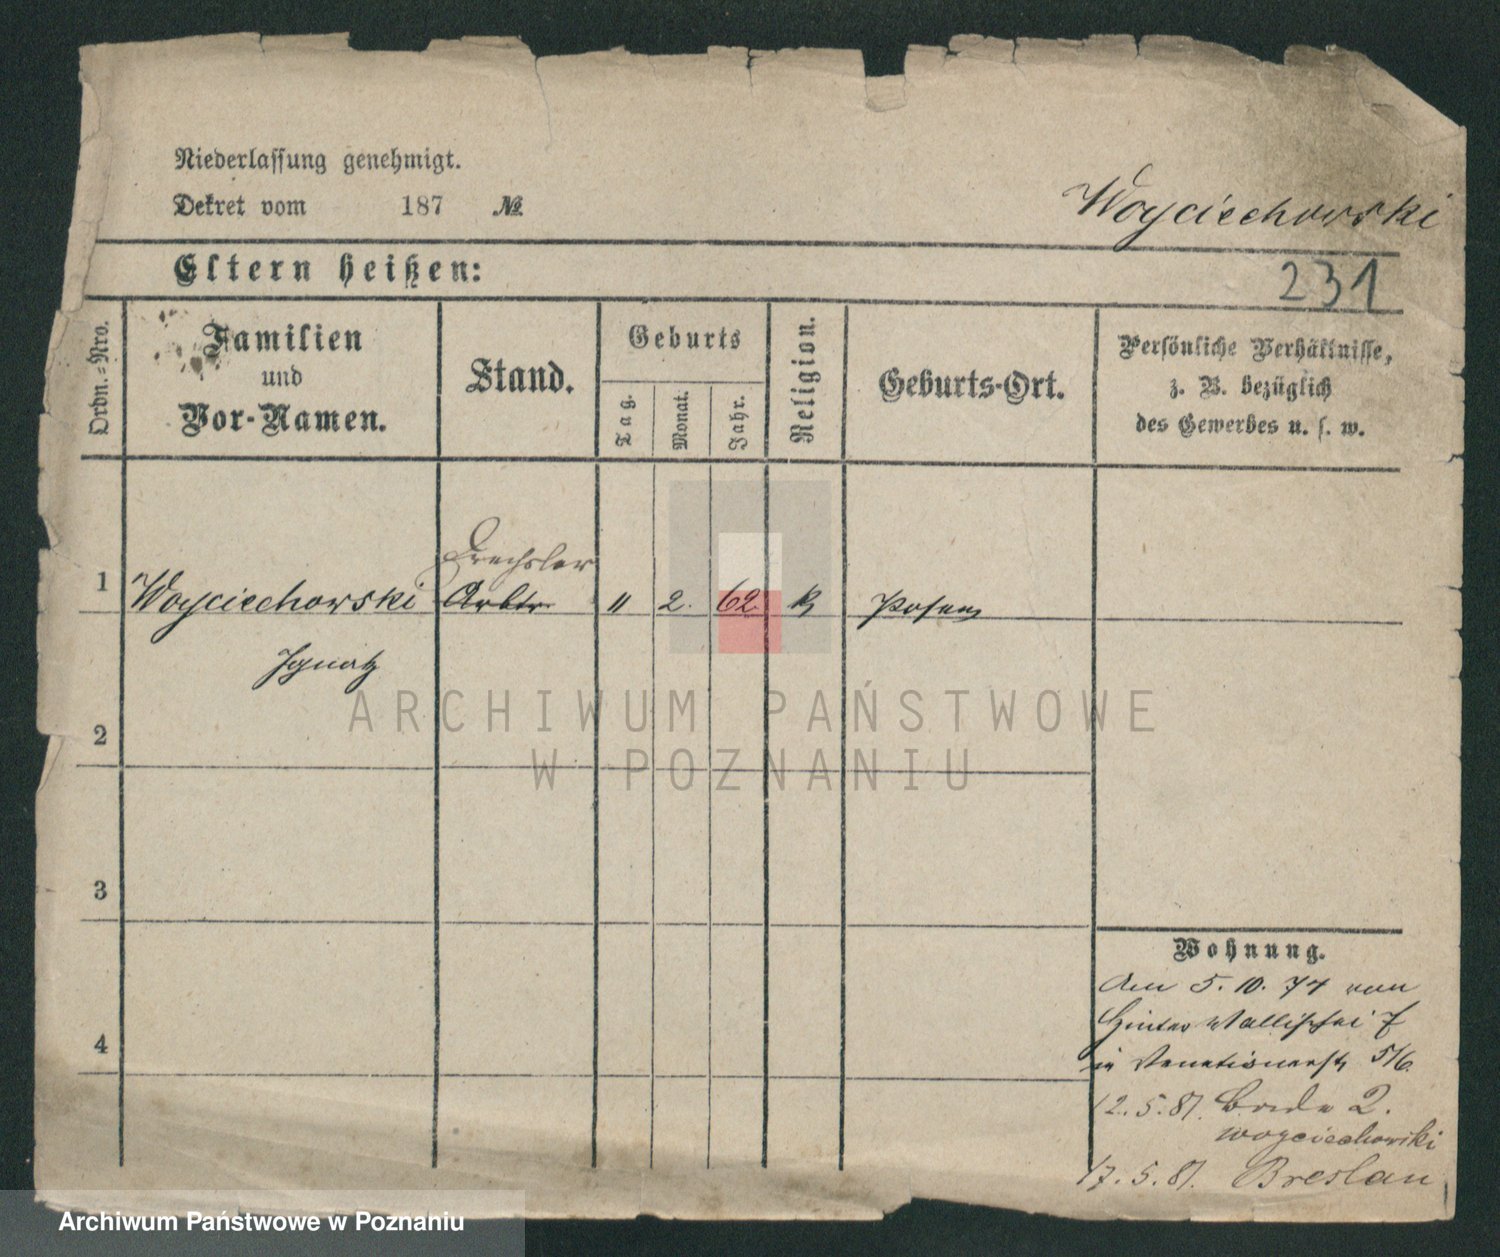 Niederlassung genehmigt.
Dekret vom 187 №
Woyciechowski
Eltern heißen:
231
Ordn.=Nro.
Familien
und
Vor-Namen.
Stand.
Geburts
Tag.
Monat.
Jahr.
Religion.
Geburts-Ort.
Persönliche Verhältnisse,
z. B. bezüglich
des Gewerbes u. s. w.
Drechsler
1 Woyciechowski Arbtr " 2. 62. k Posen
Ignatz
2
3
4
Wohnung.
Am 5. 10. 74 von
Hinter Wallischei 7
in Venetianerstr 5/6.
12. 5. 81. 2.
Woyciechowski
17. 5. 81. Breslau
ARCHIWUM PAŃSTWOWE
W POZNANIU
Archiwum Państwowe w Poznaniu